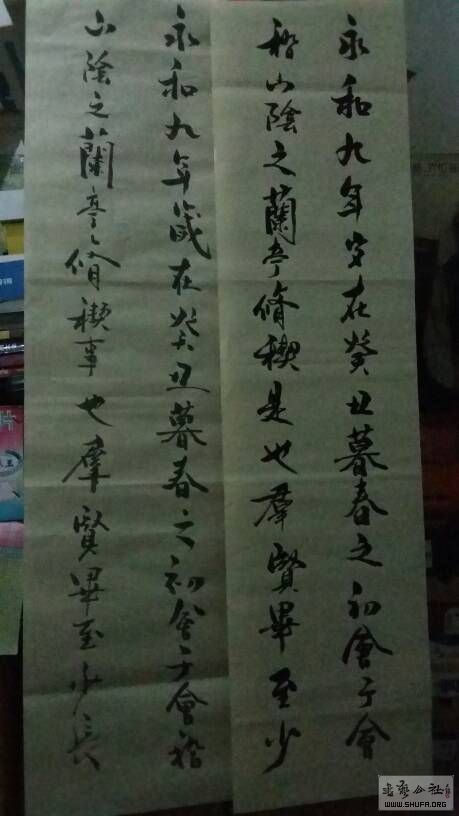 永和九年岁在癸丑暮春之初會于會
稽山陰之蘭亭脩禊是也羣賢畢至少
永和九年歲在癸丑暮春之初會于會稽
山陰之蘭亭脩禊事也羣賢畢至少長
書藝公社
WWW.SHUFA.ORG